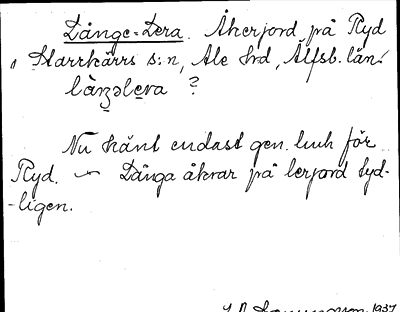 Långe-Lera. Åkerjord på Ryd
i Starrkärrs s:n, Ale hd, Älfsb. län.
làŋəleva ?
Nu känt endast gen. luch för
Ryd. — Långa åkrar på lerjord tyd-
-ligen.
1937